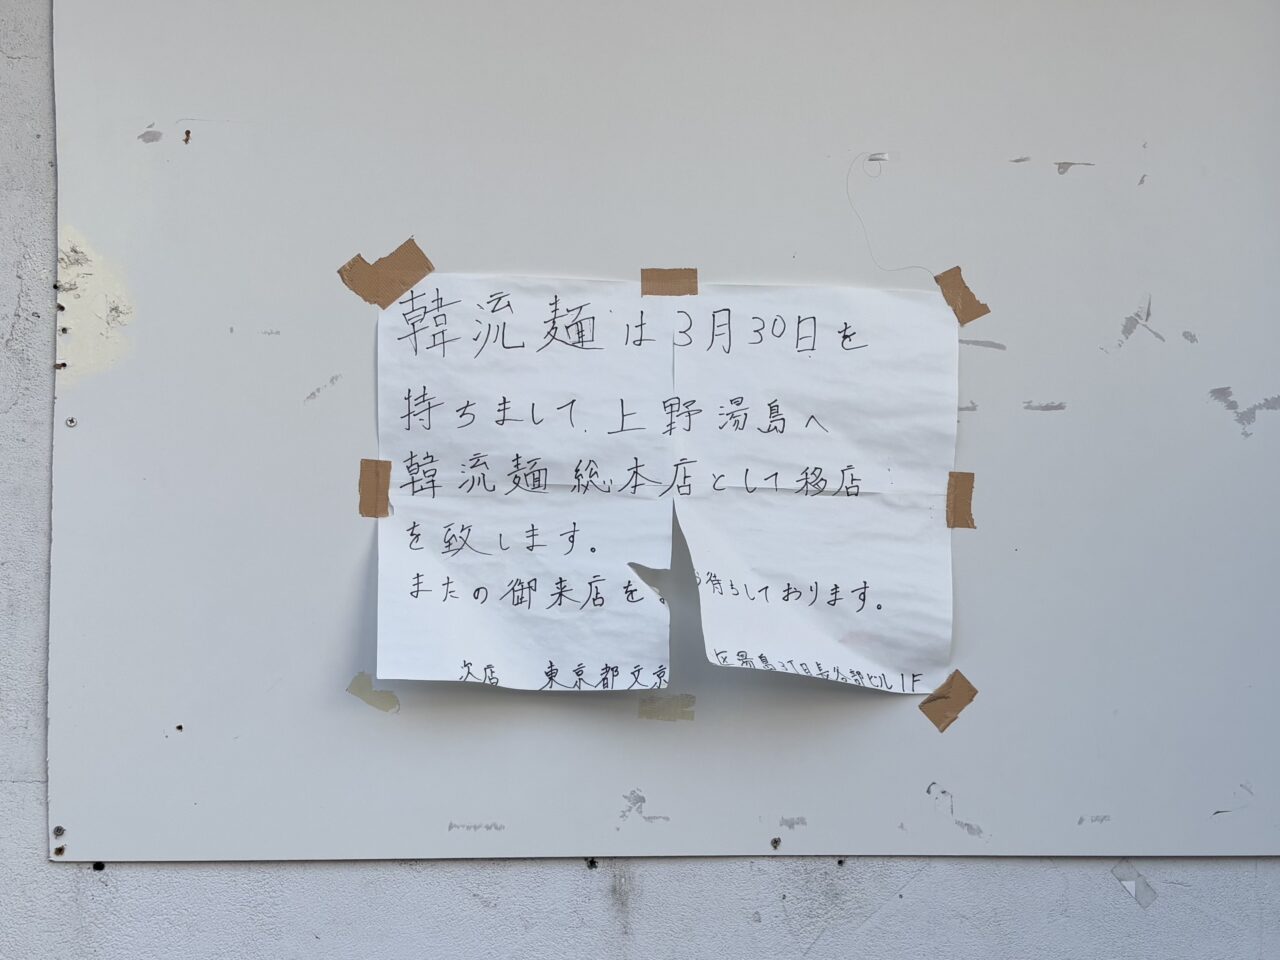 韓流麺は3月30日を
持ちまして、上野湯島へ
韓流麺総本店として移店
を致します。
またの御来店を お待ちしております。
次店 東京都文京区湯島3丁目長谷部ビル1F